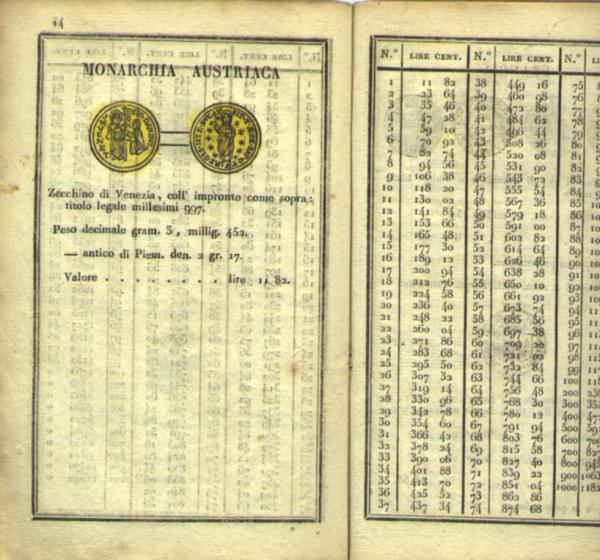 14
MONARCHIA AUSTRIACA
Zecchino di Venezia, coll' impronto come sopra;
titolo legale millesimi 997.
Peso decimale gram. 3, millig. 452.
— antico di Piem. den. 2 gr. 17.
Valore . . . . . . . lire 11 82.
N.° LIRE CENT. N.° LIRE CENT. N.° LIR
1 11 82 38 449 16 75
2 23 64 39 460 98 76
3 35 46 40 472 80
4 47 28 41 484 62 78
5 59 10 42 496 44 79
6 70 92 43 508 26 80
7 82 74 44 520 08 81
8 94 56 45 531 90 82
9 106 38 46 543 72 83
10 118 20 47 555 54 84
11 130 02 48 567 36 85
12 141 84 49 579 18 86
13 153 66 50 591 00 87
14 165 48 51 602 82 88
15 177 30 52 614 64 89
16 189 12 53 626 46 90
17 200 94 54 638 28 91
18 212 76 55 650 10 92
19 224 58 56 661 92 93
20 236 40 57 673 74 94
21 248 22 58 685 56 95
22 260 04 59 697 38 96
23 271 86 60 709 20 97
24 283 68 61 721 02 98
25 295 50 62 732 84 99
26 307 32 63 744 66 100
27 319 14 64 756 48 200
28 330 96 65 768 30 300
29 342 78 66 780 12 400
30 354 60 67 791 94 500
31 366 42 68 803 76 600
32 378 24 69 815 58 700
33 390 06 70 827 40 800
34 401 88 71 839 22 900
35 413 70 72 851 04 1000
36 425 52 73 862 86
37 437 34 74 874 68